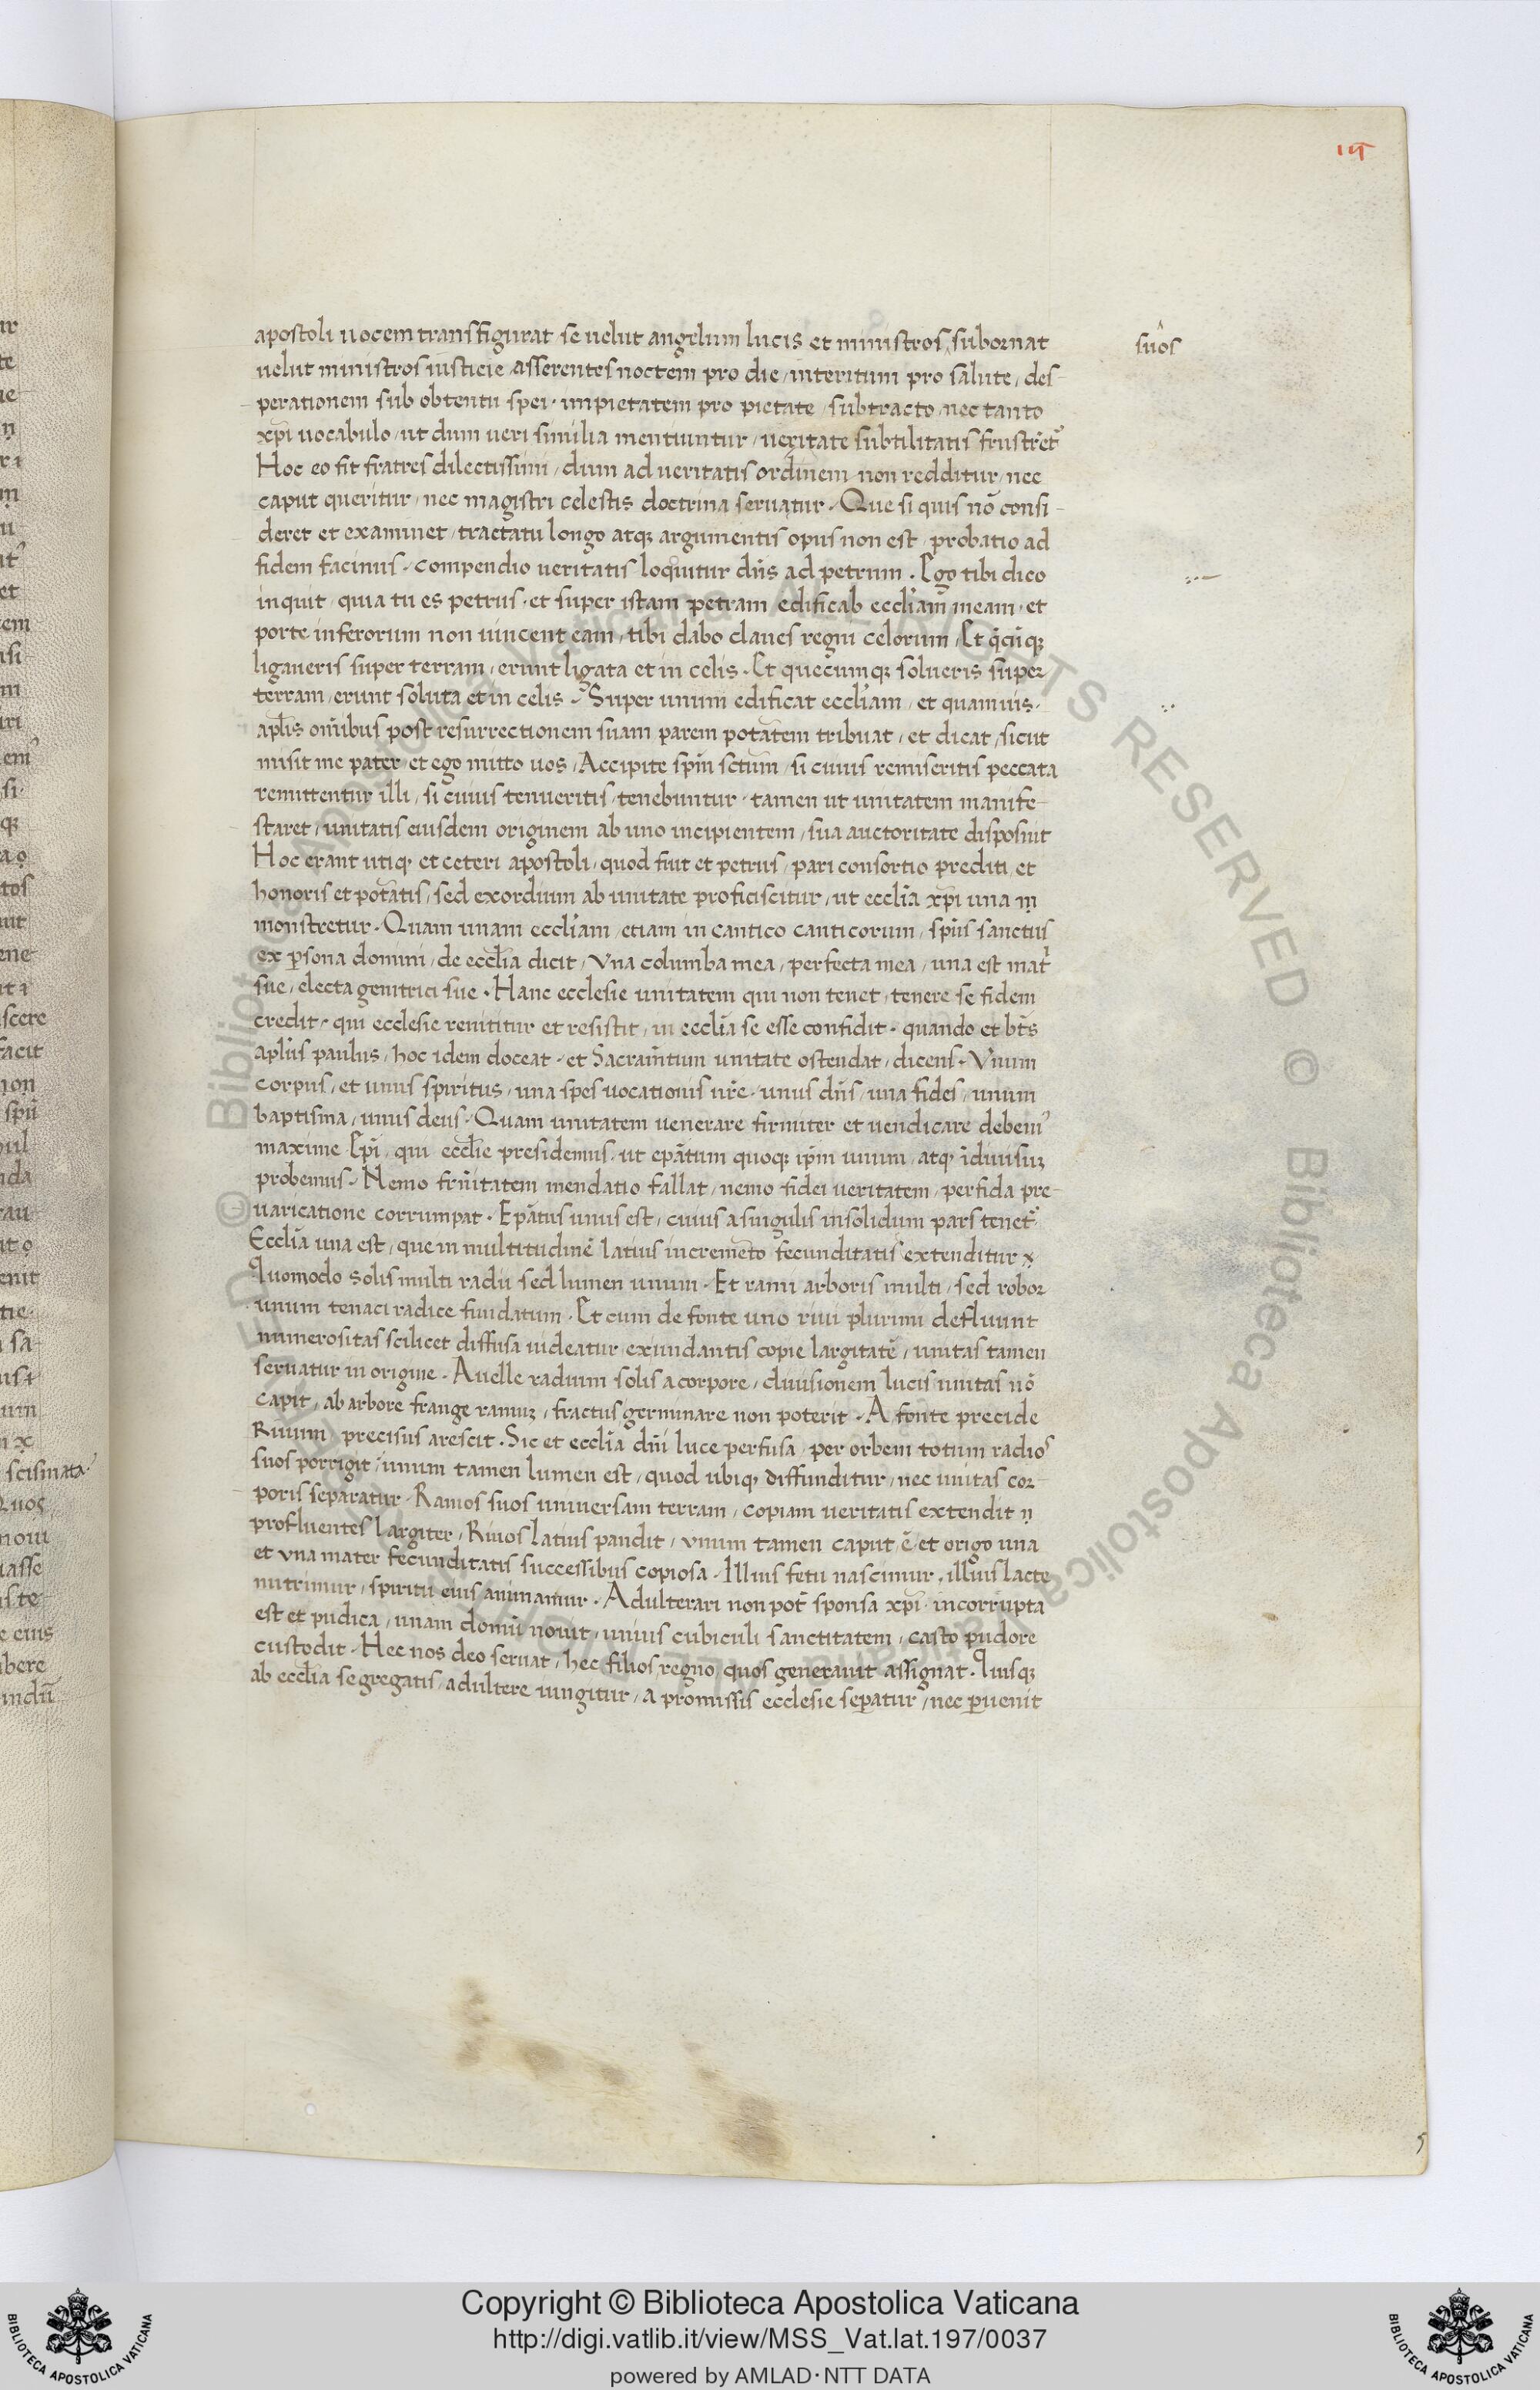 14
apostoli uocem transfigurat se uelut angelum lucis et ministros, subornat
suos
uelut ministros iusticie asserentes noctem pro die, interitum pro salute, des-
perationem sub obtentu spei · impietatem pro pietate, subtracto, nec tanto
xp̅i uocabulo, ut dum ueri similia mentiuntur, ueritate subtilitatis frustret᷑
Hoc eo fit fratres dilectissimi, dum ad ueritatis ordinem non redditur, nec
caput queritur, nec magistri celestis doctrina seruatur. Que si quis no̅ consi-
deret et examinet, tractatu longo atqꝫ argumentis opus non est, probatio ad
fidem facinus. compendio ueritatis loquitur dn̅s ad petrum. Ego tibi dico
inquit, quia tu es petrus, et super istam petram edificab eccl̅iam meam, et
porte inferorum non uincent eam, tibi dabo claues regni celorum, Et q̅cu̅qꝫ
ligaueris super terram, erunt ligata et in celis. Et quecumqꝫ solueris super
terram, erunt soluta et in celis. Super unum edificat eccl̅iam, et quamuis
apl̅is om̅ibus post resurrectionem suam parem pot̅atem tribuat, et dicat, sicut
misit me pater et ego mitto uos, Accipite sp̅m sc̅tum, si cuius remiseritis peccata
remittentur illi, si cuius tenueritis, tenebuntur, tamen ut unitatem manife-
staret, unitatis eiusdem originem ab uno incipientem, sua auctoritate disposuit
Hoc erant utiqꝫ et ceteri apostoli, quod fuit et petrus, pari consortio prediti, et
honoris et pot̅atis, sed exordium ab unitate proficiscitur, ut eccl̅ia xp̅i una m
monstretur. Quam unam eccl̅iam, etiam in cantico canticorum, sp̅us sanctus
ex ꝑsona domini, de eccl̅ia dicit, Vna columba mea, perfecta mea, una est mat̅
sue, electa genitrici sue. Hanc ecclesie unitatem qui non tenet, tenere se fidem
credit, qui ecclesie renititur et resistit, in eccl̅ia se esse confidit. quando et bt̅s
apl̅us paulus, hoc idem doceat, et Sacram̅tum unitate ostendat, dicens. Vnum
corpus, et unus spiritus, una spes uocationis ur̅e, unus dn̅s, una fides, unum
baptisma, unus deus. Quam unitatem uenerare firmiter et uendicare debem᷒
maxime Ep̅i, qui eccl̅ie presidemus, ut ep̅atum quoqꝫ ip̅m unum, atqꝫ i̅diuisuꝫ
probemus. Nemo frn̅itatem mendatio fallat, nemo fidei ueritatem, perfida pre-
uaricatione corrumpat. Ep̅atus unus est, cuius a singulis insolidum pars tenet᷑
Eccl̅ia una est, que in multitudine̅ latius increme̅to fecunditatis extenditur
Quomodo solis multi radii sed lumen unum. Et rami arboris multi, sed robor
unum tenaci radice fundatum. Et cum de fonte uno riui plurimi defluunt
numerositas scilicet diffusa uideatur exundantis copie largitate̅, unitas tamen
seruatur in origine. Auelle radium solis a corpore, diuisionem lucis unitas no̅
capit, ab arbore frange ramuꝫ, fractus germinare non poterit. A fonte precide
Riuum, precisus arescit. Sic et eccl̅ia dn̅i luce perfusa, per orbem totum radios
suos porrigit, unum tamen lumen est, quod ubiqꝫ diffunditur, nec unitas cor-
poris separatur. Ramos suos uniuersam terram, copiam ueritatis extendit
profluentes largiter, Riuos latius pandit, unum tamen caput e̅ et origo una
et una mater fecunditatis successibus copiosa. Illius fetu nascimur, illius lacte
nutrimur, spiritu eius animamur. Adulterari non pot̅ sponsa xp̅i, incorrupta
est et pudica, unam domu̅ nouit, unius cubiculi sanctitatem, casto pudore
custodit. Hec nos deo seruat, hec filios regno quos generauit assignat. Quisqꝫ
ab eccl̅ia segregatis, adultere iungitur, a promissis ecclesie seꝑatur, nec ꝑuenit
Copyright © Biblioteca Apostolica Vaticana
http://digi.vatlib.it/view/MSS_Vat.lat.197/0037
powered by AMLAD·NTT DATA
BIBLIOTECA APOSTOLICA VATICANA
BIBLIOTECA APOSTOLICA VATICANA